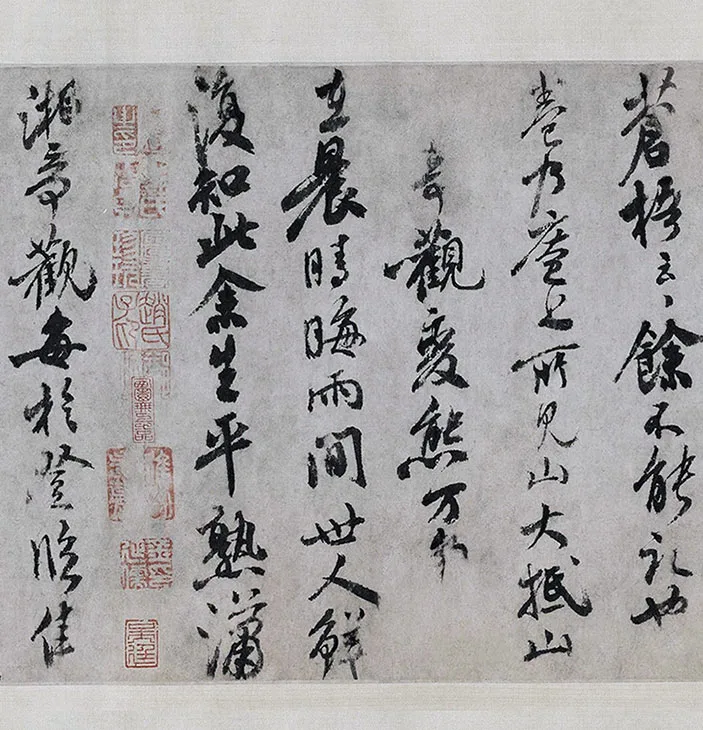 蒼梧云〻餘不能記也
卷乃菴上所見山大抵山
奇觀變態万
在晨晴晦雨間世人鮮
復知此余生平熟瀟
湘奇觀每於登臨佳